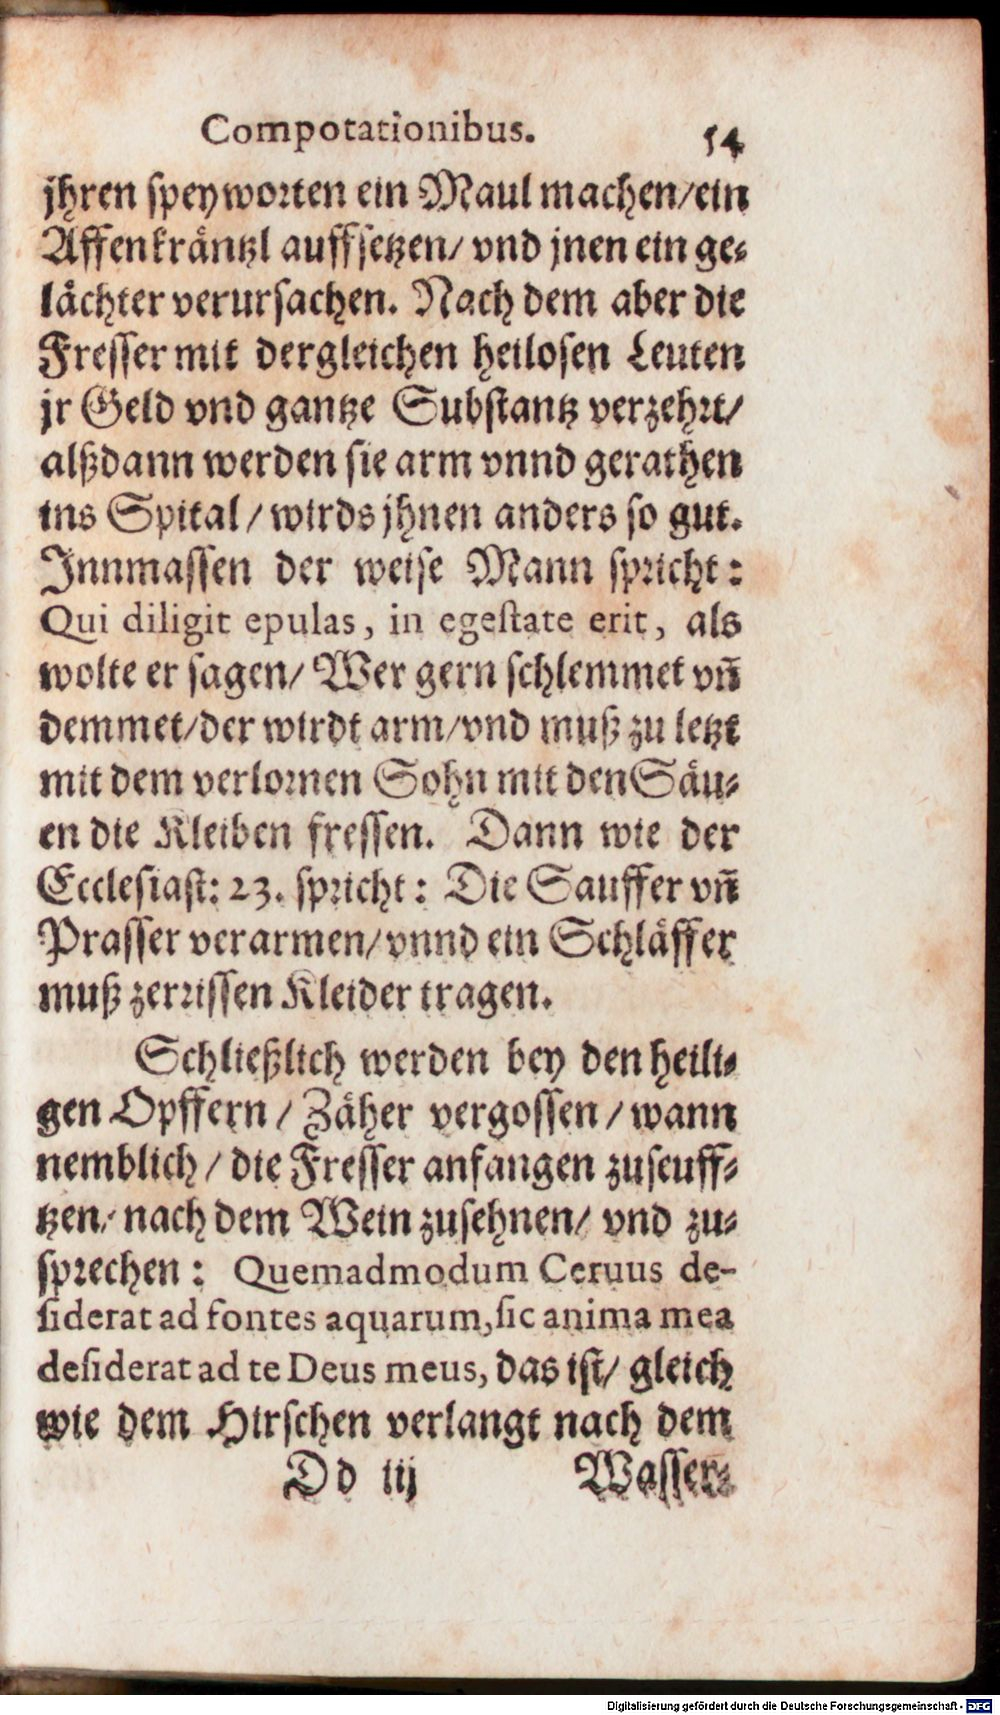 Compotationibus. 54
jhren speyworten ein Maul machen/ein
Affenkräntzl auffsetzen/ vnd jnen ein ge-
lächter verursachen. Nach dem aber die
Fresser mit dergleichen heilosen Leuten
jr Geld vnd gantze Substantz verzehrt/
alßdann werden sie arm vnnd gerathen
ins Spital/ wirds jhnen anders so gut.
Innmassen der weise Mann spricht:
Qui diligit epulas, in egestate erit, als
wolte er sagen/ Wer gern schlemmet vn̄
demmet/der wirdt arm/vnd muß zu letzt
mit dem verlornen Sohn mit den Säu-
en die Kleiben fressen. Dann wie der
Ecclesiast: 23. spricht: Die Sauffer vn̄
Prasser verarmen/vnnd ein Schläffer
muß zerrissen Kleider tragen.
Schließlich werden bey den heili-
gen Opffern/ Zäher vergossen/ wann
nemblich/ die Fresser anfangen zuseuff-
tzen/ nach dem Wein zusehnen/ vnd zu-
sprechen: Quemadmodum Ceruus de-
siderat ad fontes aquarum, sic anima mea
desiderat ad te Deus meus, das ist/ gleich
wie dem Hirschen verlangt nach dem
Dd iij Wasser-
Digitalisierung gefördert durch die Deutsche Forschungsgemeinschaft - DFG